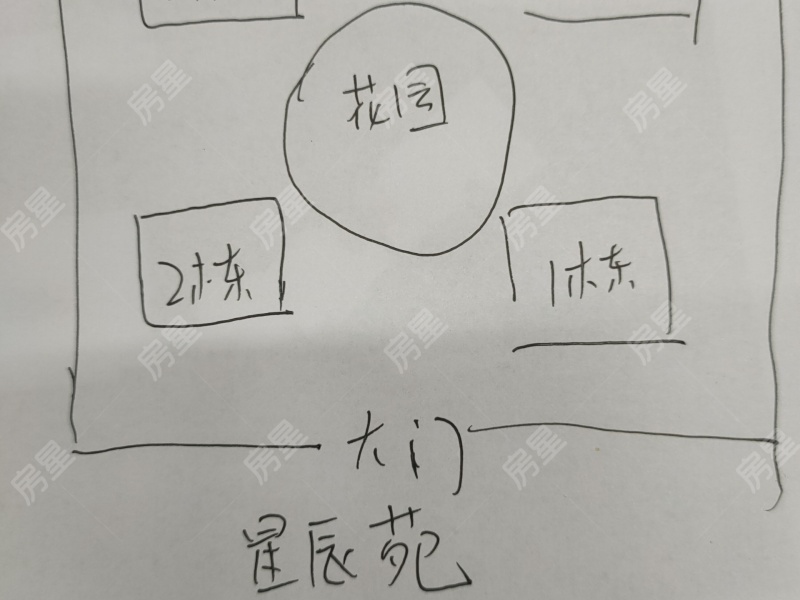 花园
2栋
1栋
大门
星辰苑
房星
房星
房星
房星
房星
房星
房星
房星
房星
房星
房星
房星
房星